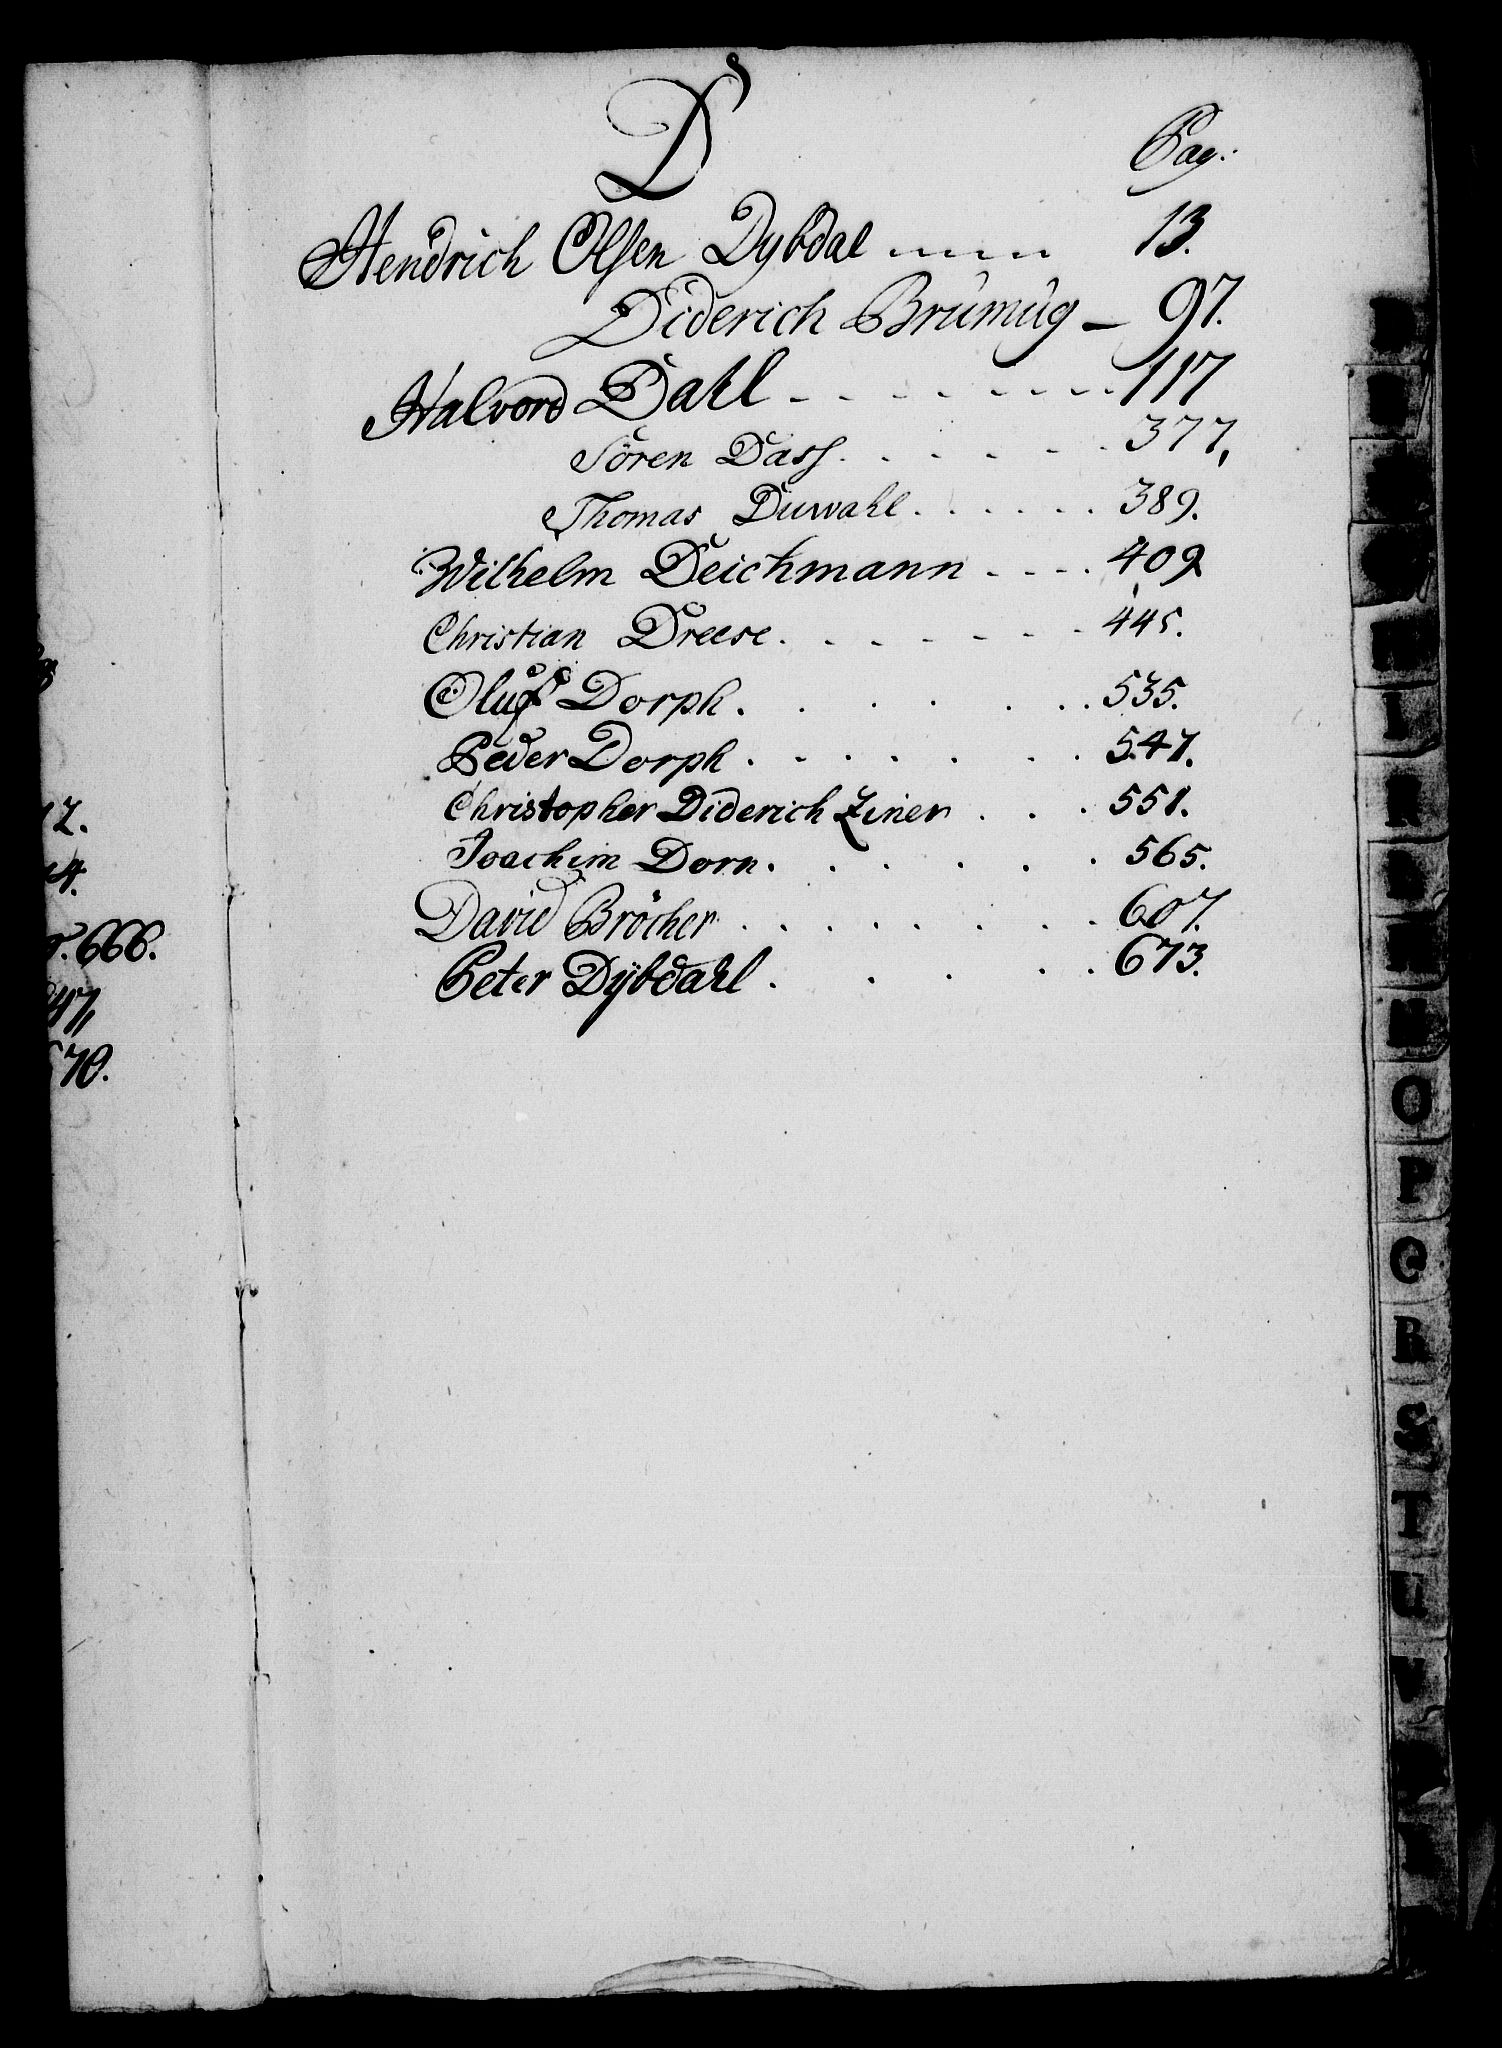 D
Pag:
Hendrich Olsen Dybdal 13.
Diderich Brúmúg – 97.
Halvord Dahl - - - - - - - - 117
Sören Dass. . . - - - - 377,
Thomas Duwahl. . . . . . . 389.
Wilhelm Deichmann - - - . 409
Christian Dreese. - - - - - - 445.
Oluf Dorph. . . . . . . 535.
Peder Dorph . . . . . . . 547.
Christopher Diderich Ziner . . . 551.
Joachim Dorn. . . . . . 565.
David Bröcher . . . . . . . . 607.
Peter Dÿbdahl . . . . . 673.
12.
666.
47,
670.
I
K
N
O
P
Q
R
S
T
U